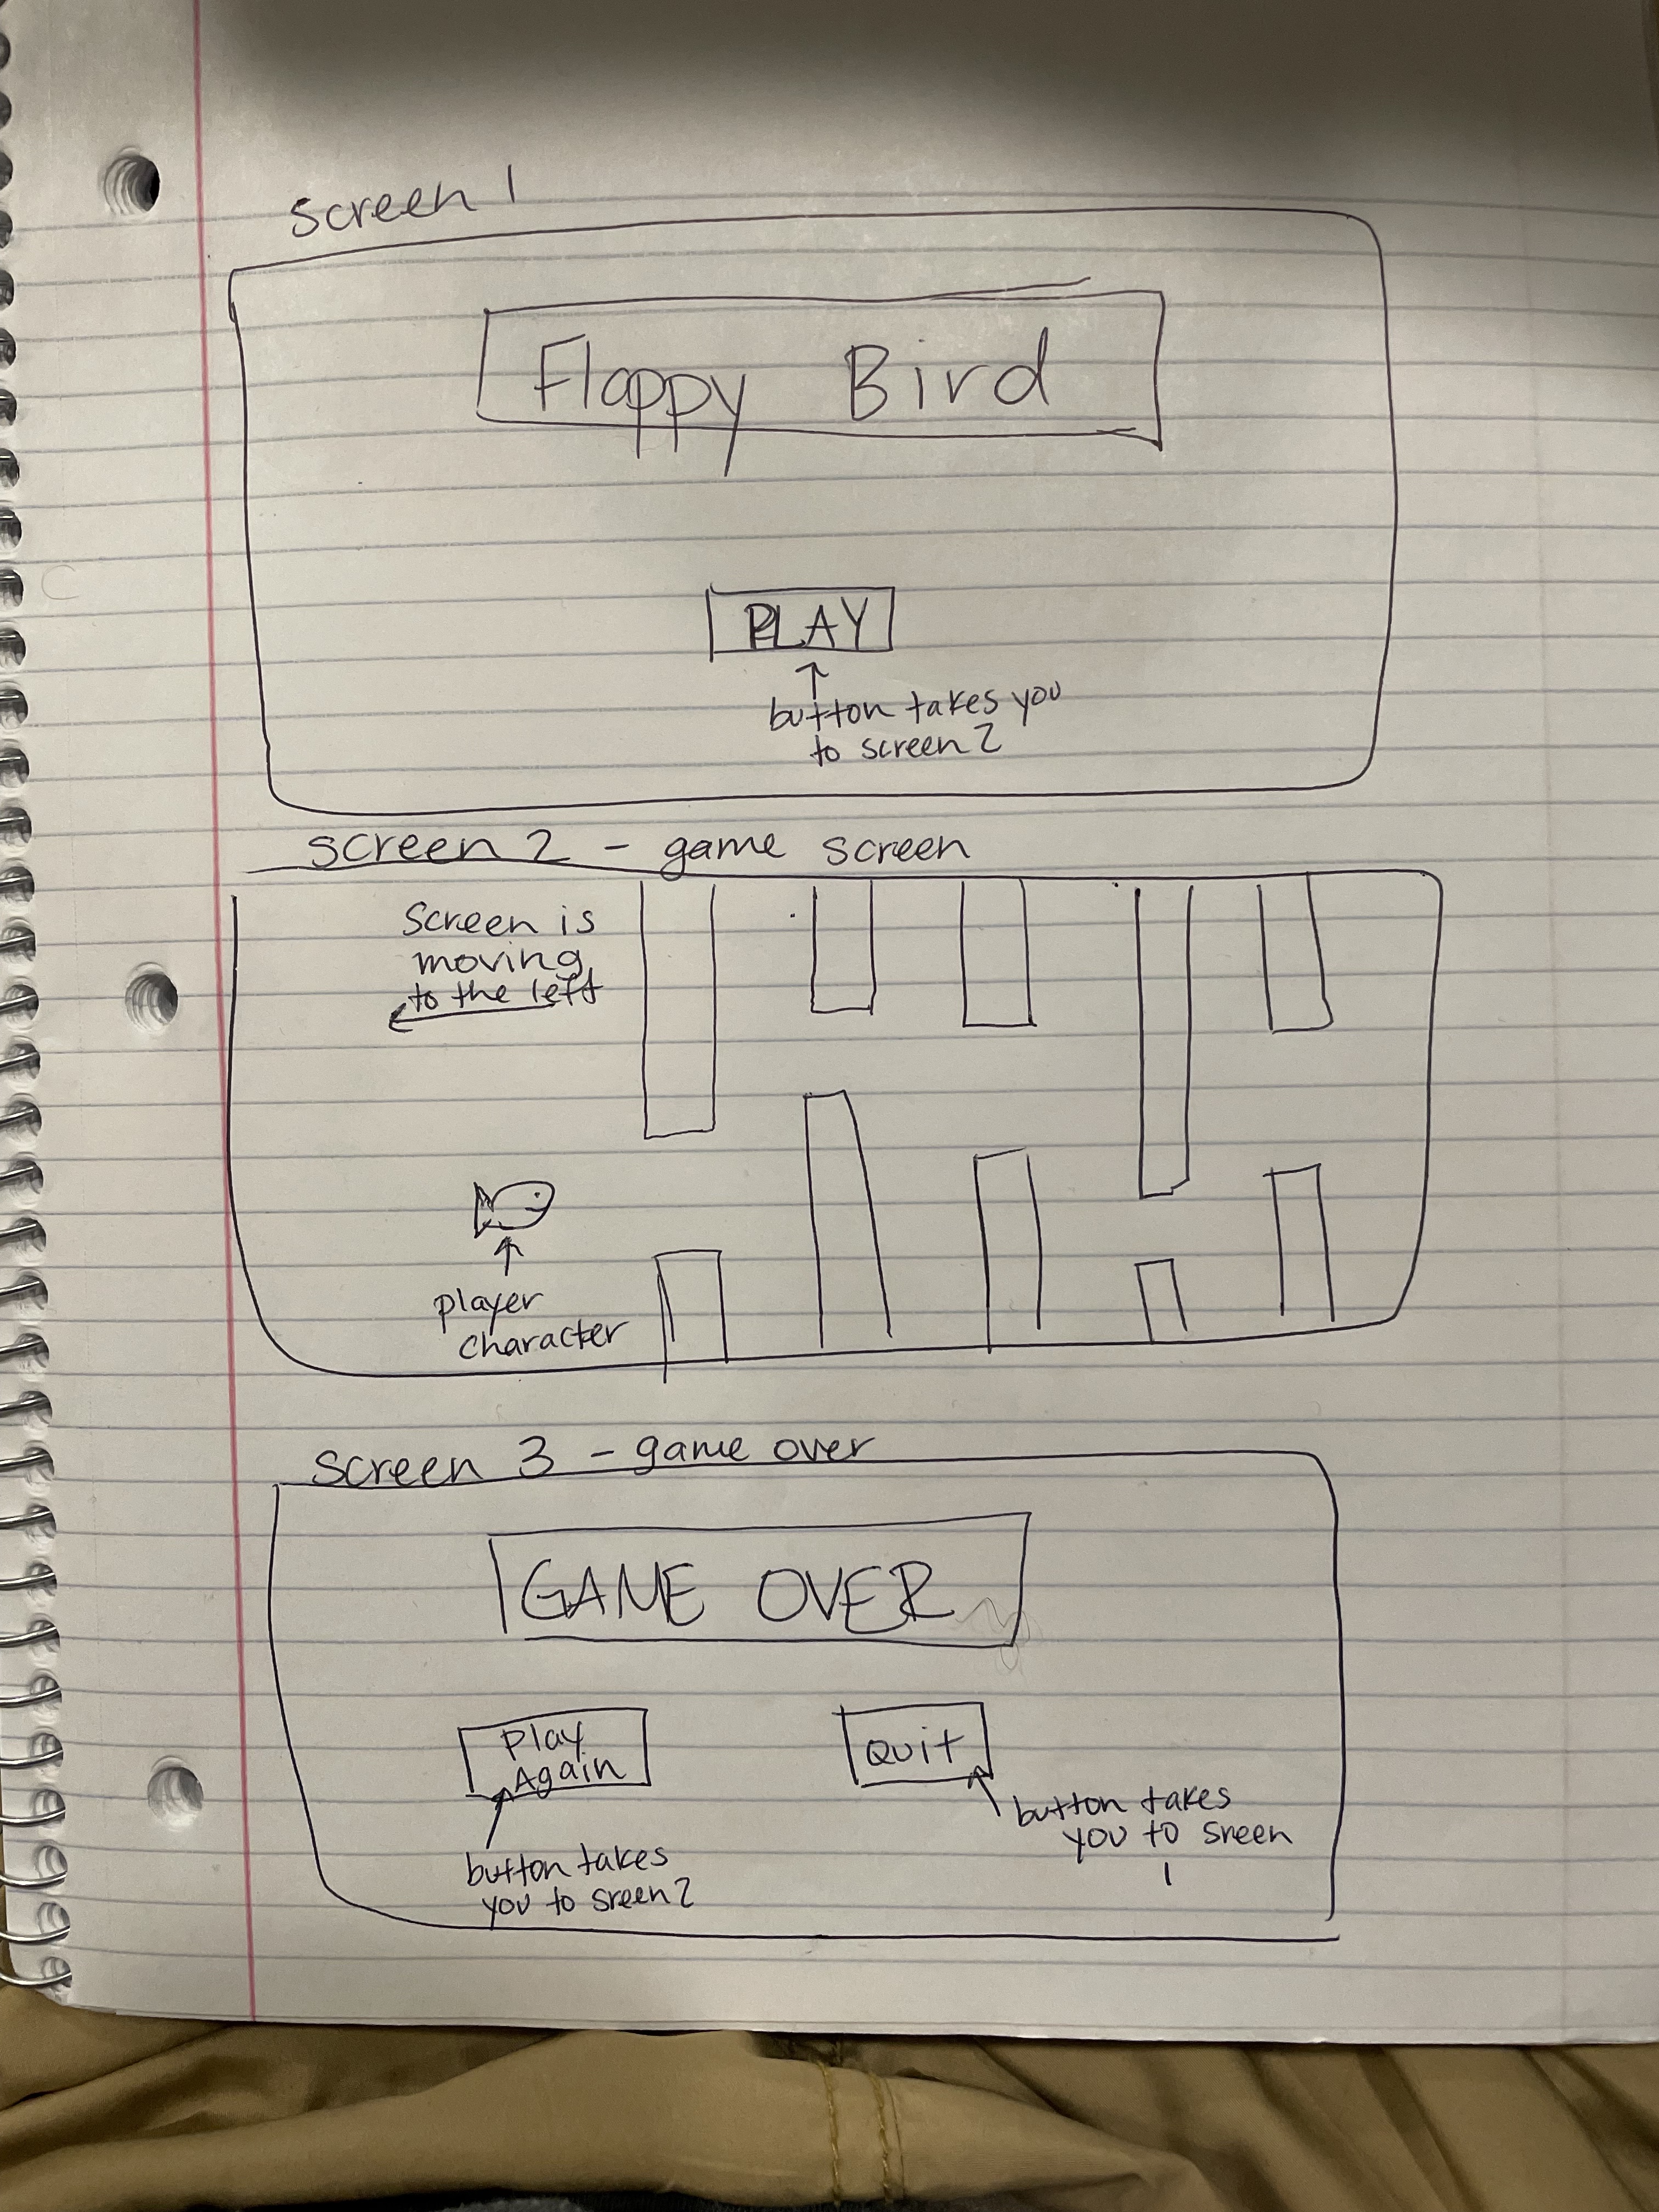 screen 1
Flappy Bird
PLAY
button takes you
to screen 2
screen 2 - game screen
Screen is
moving
to the left
player
character
screen 3 - game over
GAME OVER
Play
Again
Quit
button takes
you to sreen
1
button takes
you to sreen 2